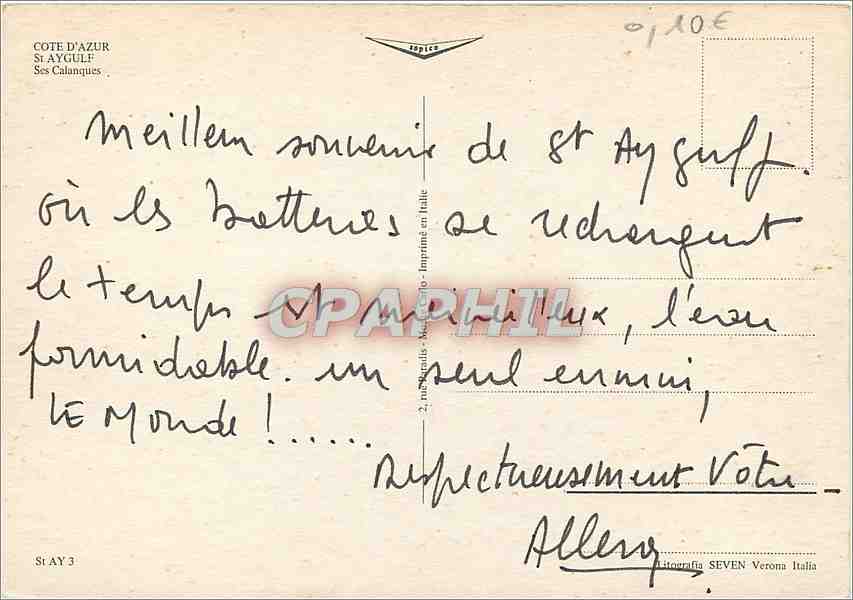 0,10€
COTE D'AZUR
St AYGULF
Ses Calanques
topico
Meilleur souvenir de St Aygulf.
où les batteries se rechargent
le temps est merveilleux, l'eau
formidable. un seul ennui,
LE Monde !......
Respectueusement Vôtre
2, rue Paradis - Monte Carlo - Imprimé en Italie
CPAPHIL
St AY 3
Litografia SEVEN Verona Italia